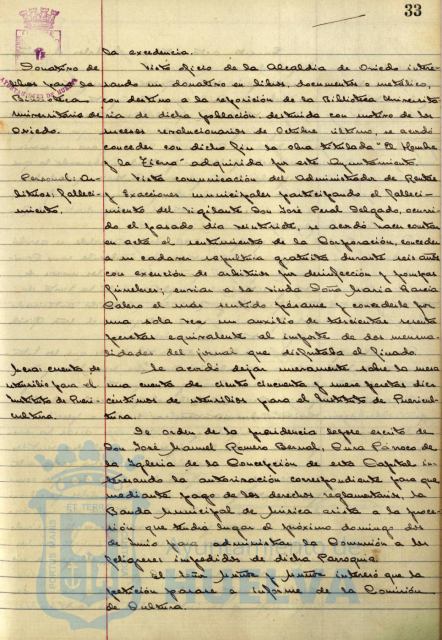 33
la excedencia.
Donativo de
libros para la
Biblioteca
universitaria de
Oviedo.
Visto oficio de la Alcaldía de Oviedo intere-
sando un donativo en libros, documentos o metálico,
con destino a la reposición de la Biblioteca Universita-
ria de dicha población, destruida con motivo de los
sucesos revolucionarios de Octubre último, se acordó
conceder con dicho fin la obra titulada "El Hombre
y la Tierra" adquirida por este Ayuntamiento.
Personal: Ar-
bitrios: falleci-
miento.
Vista comunicación del Administrador de Rentas
y Exacciones municipales participando el falleci-
miento del Vigilante Don José Peral Delgado, ocurri-
do el pasado día veintisiete, se acordó hacer constar
en acta el sentimiento de la Corporación, conceder
a su cadaver sepultura gratuita durante seis años
con exención de arbitrios por desinfección y pompas
fúnebres; enviar a la viuda Doña María García
Calero el más sentido pésame y concederle por
una sola vez un auxilio de trescientas sesenta
pesetas equivalente al importe de dos mensua-
lidades del jornal que disfrutaba el finado.
Mesa: cuenta de
utensilio para el
Instituto de Pueri-
cultura.
Se acordó dejar nuevamente sobre la mesa
una cuenta de ciento cincuenta y nueve pesetas diez
céntimos de utensilios para el Instituto de Puericul-
tura.
De orden de la presidencia leyose escrito de
Don José Manuel Romero Bernal, Cura Párroco de
la Iglesia de la Concepción de esta Capital in-
teresando la autorización correspondiente para que
mediante pago de los derechos reglamentarios, la
Banda Municipal de Música asista a la proce-
sión que tendrá lugar el próximo domingo dos
de Junio para administrar la Comunión a los
feligreses impedidos de dicha Parroquia.
El Señor Muñiz y Muñoz interesó que la
petición pasase a informe de la Comisión
de Cultura.
PORTUS MARIS ET TERRAE
Ayuntamiento de
HUELVA